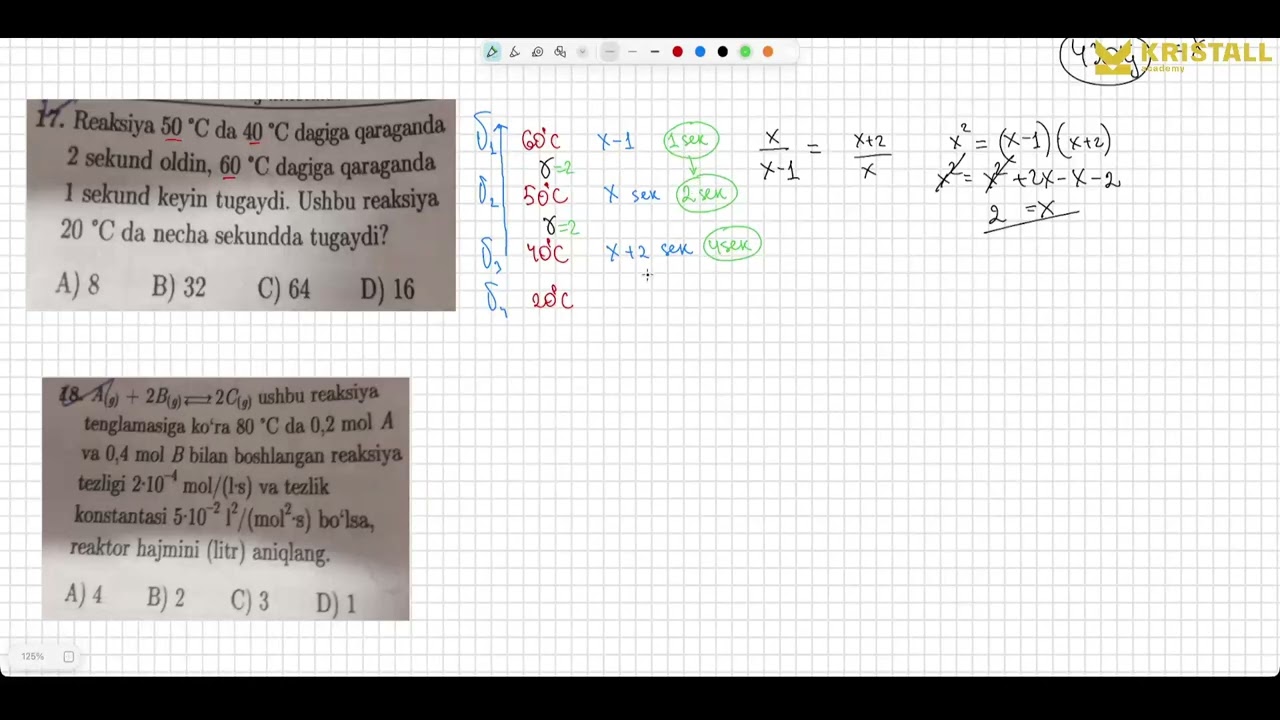 KRISTALL
academy
17. Reaksiya 50 °C da 40 °C dagiga qaraganda
2 sekund oldin, 60 °C dagiga qaraganda
1 sekund keyin tugaydi. Ushbu reaksiya
20 °C da necha sekundda tugaydi?
A) 8 B) 32 C) 64 D) 16
60°C x-1 1 sek
γ=2
50°C x sek 2 sek
γ=2
40°C x+2 sek 4 sek
20°C
x/(x-1) = (x+2)/x
x² = (x-1)(x+2)
x² = x² + 2x - x - 2
2 = x
18. A(g) + 2B(g) ⇄ 2C(g) ushbu reaksiya
tenglamasiga ko‘ra 80 °C da 0,2 mol A
va 0,4 mol B bilan boshlangan reaksiya
tezligi 2·10⁻⁴ mol/(l·s) va tezlik
konstantasi 5·10⁻² l²/(mol²·s) bo‘lsa,
reaktor hajmini (litr) aniqlang.
A) 4 B) 2 C) 3 D) 1
125%